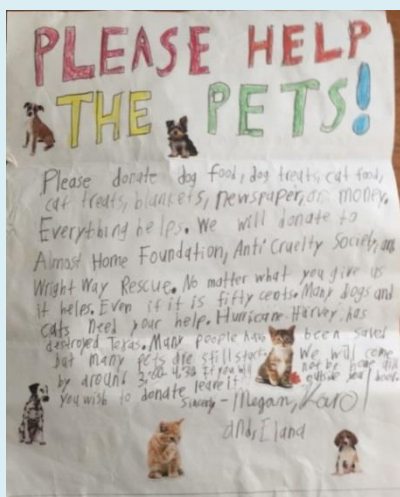 PLEASE HELP
THE PETS!
Please donate dog food, dog treats, cat food,
cat treats, blankets, newspaper, or money.
Everything helps. We will donate to
Almost Home Foundation, Anti Cruelty Society, and
Wright Way Rescue. No matter what you give us
it helps. Even if it is fifty cents. Many dogs and
cats need your help. Hurricane Harvey has
destroyed Texas. Many people have been saved
but many pets are still We will come
by around 3:00-4:30 If you will not be home
you wish to donate leave it outside your door
Sincerely - Megan,
and, Eland